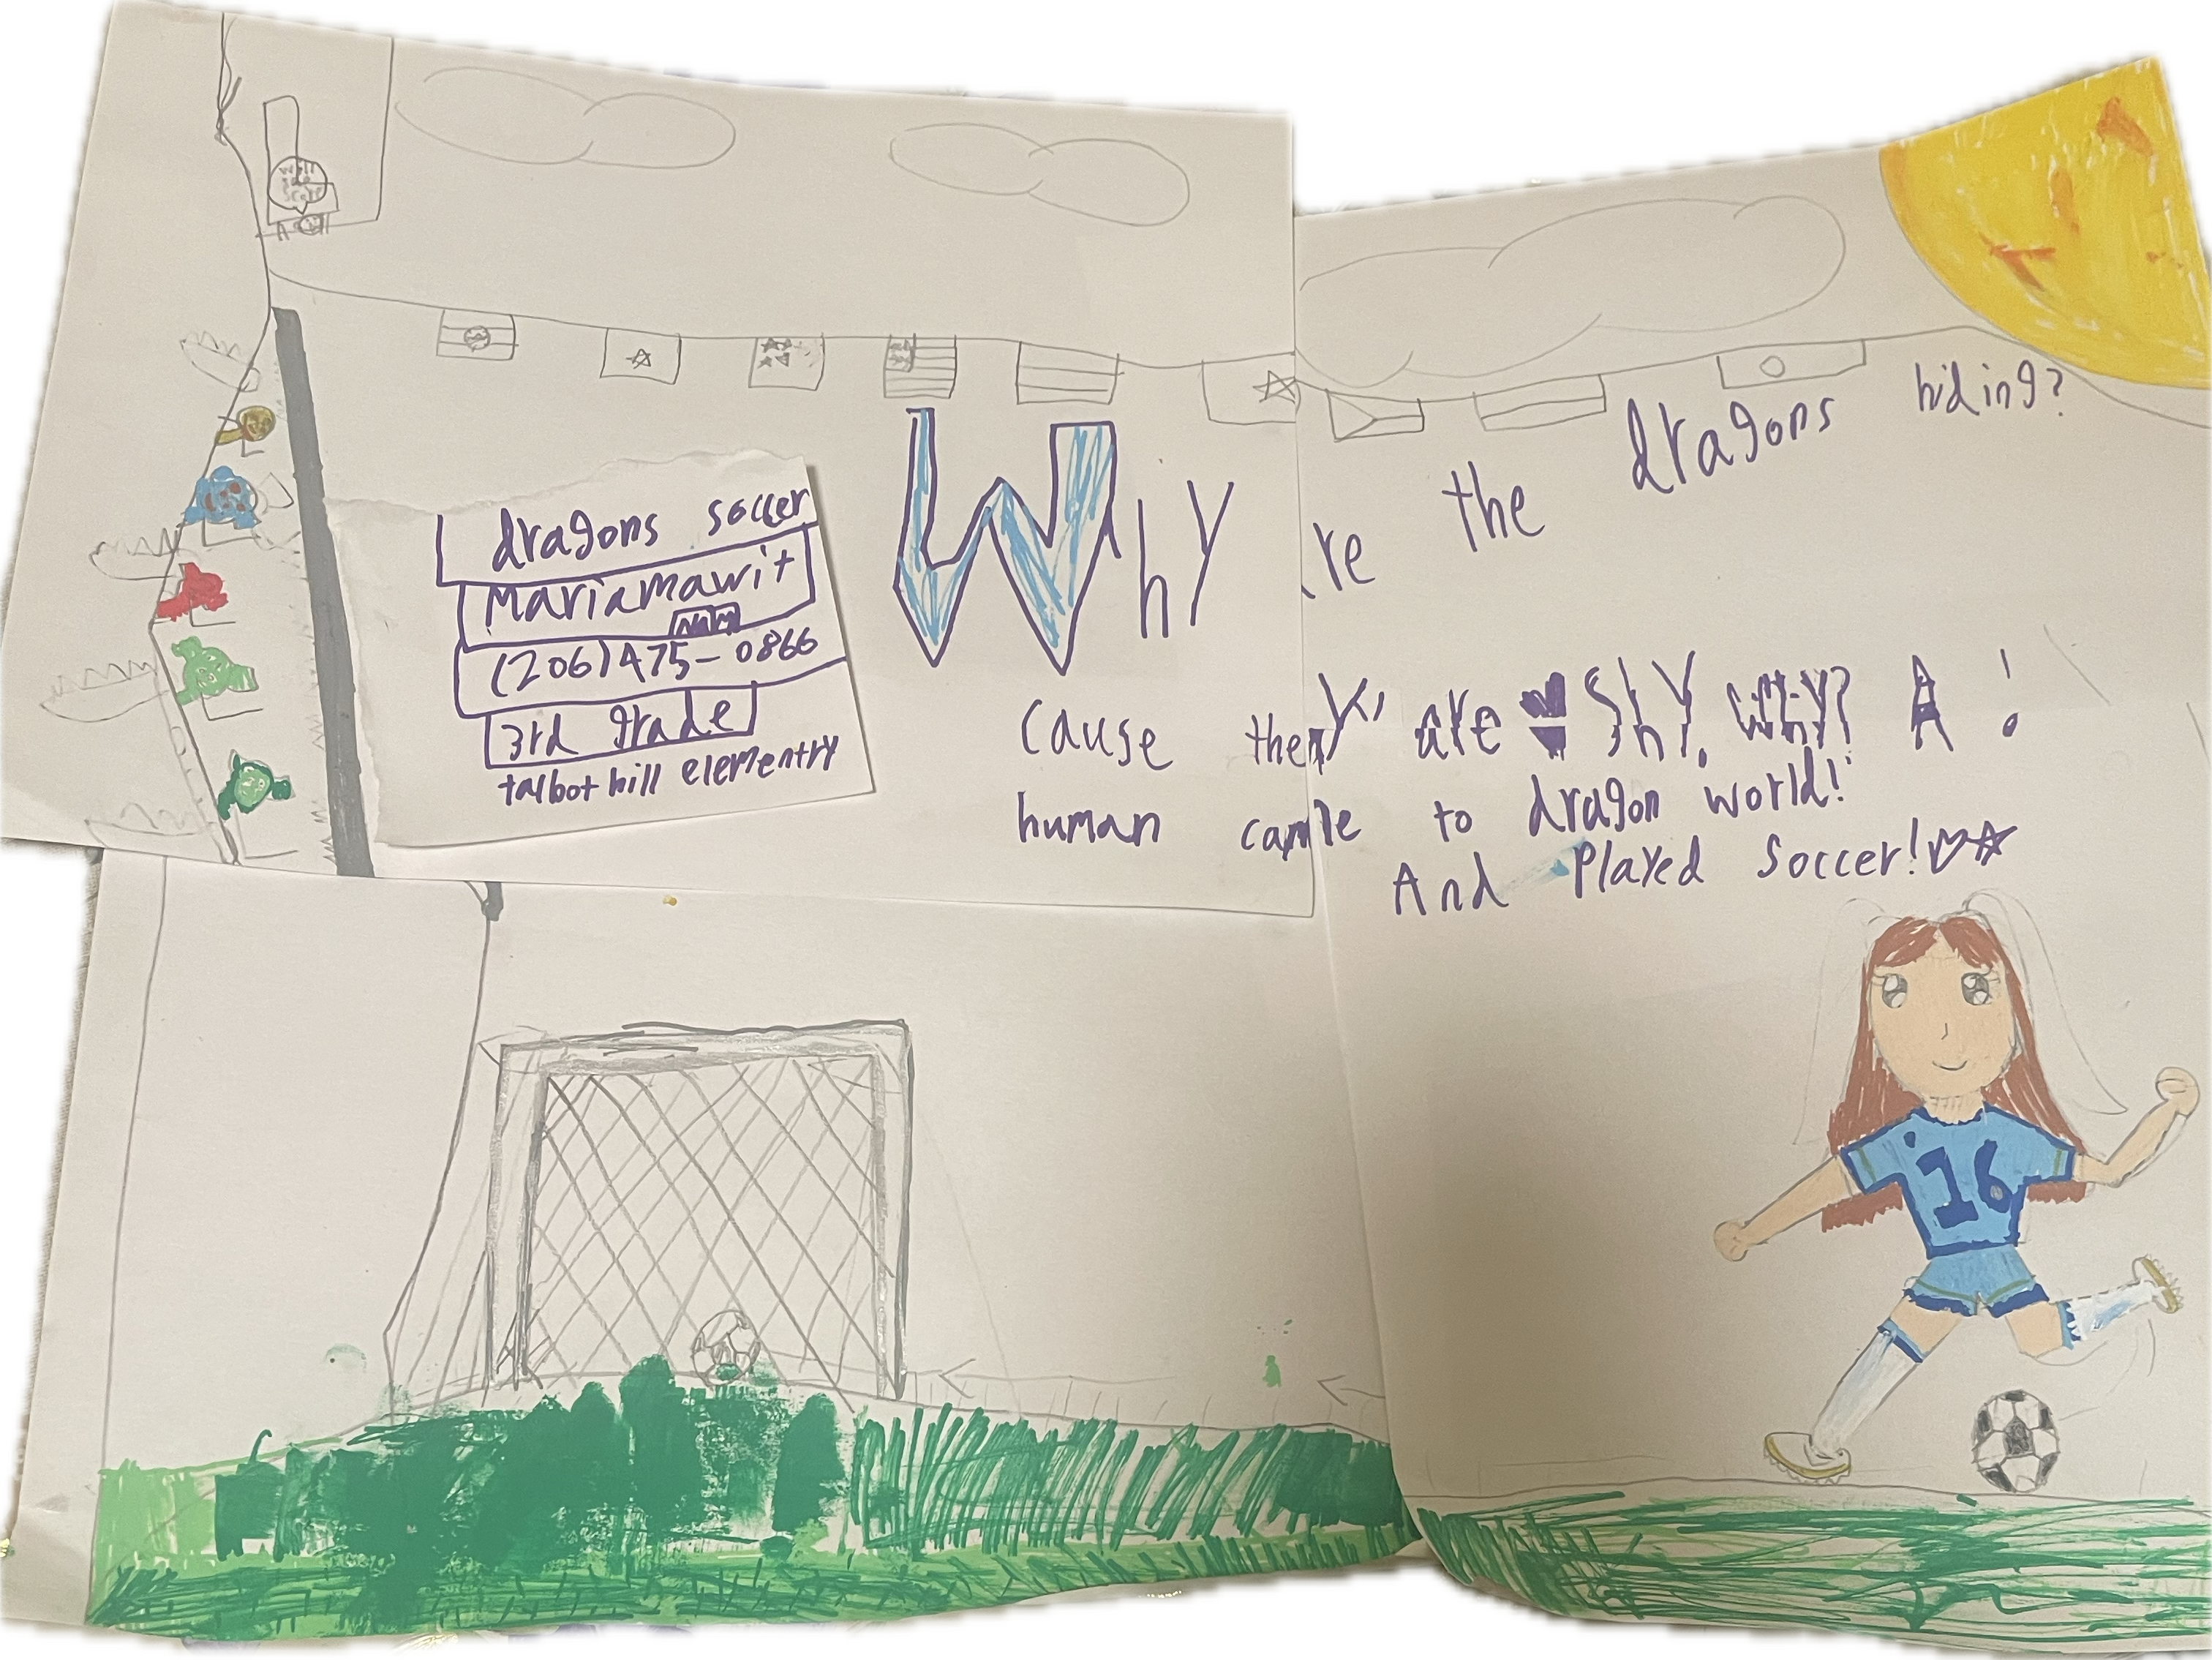 dragons soccer
Mariamawit
(206)475-0866
3rd grade
talbot hill elementry
Why are the dragons hiding?
Cause they are shy, why? A
human came to dragon world!
And Played soccer!
16